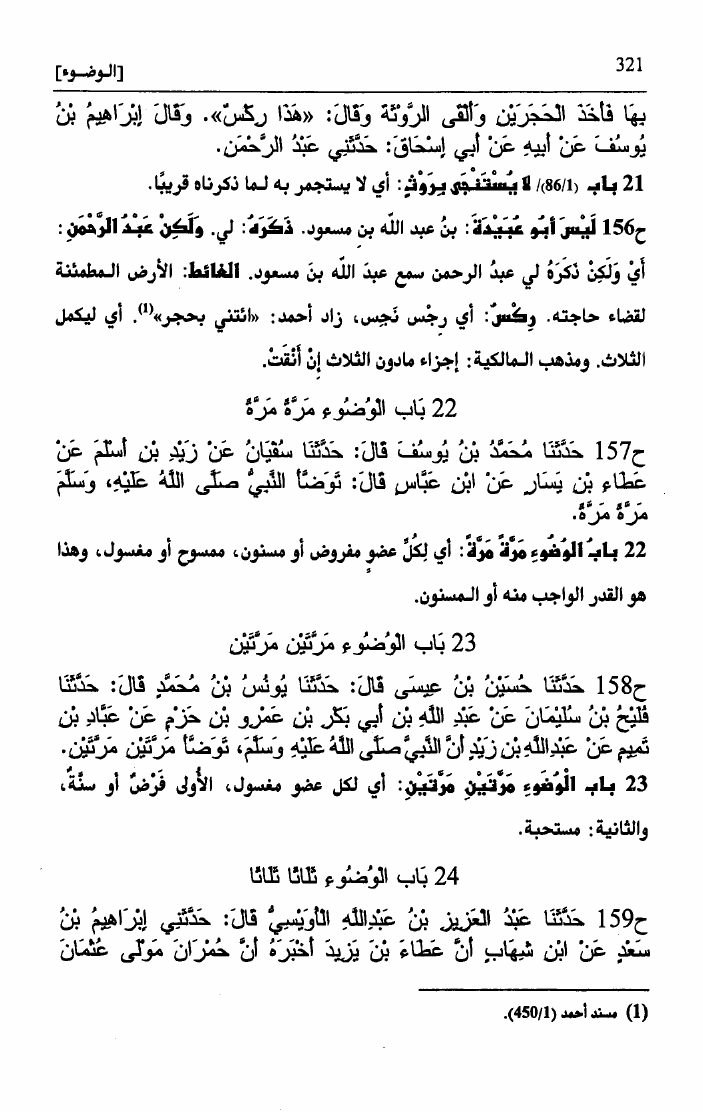 [الـوضـوء]
321
بِهَا فَأَخَذَ الْحَجَرَيْنِ وَأَلْقَى الرَّوْثَةَ وَقَالَ: «هَذَا رِكْسٌ». وَقَالَ إِبْرَاهِيمُ بْنُ
يُوسُفَ عَنْ أَبِيهِ عَنْ أَبِي إِسْحَاقَ: حَدَّثَنِي عَبْدُ الرَّحْمَنِ.
21 باب (86/1)/ لَا يُسْتَنْجَى بِرَوْثٍ: أي لا يستجمر به لما ذكرناه قريبًا.
ح156 لَيْسَ أَبُو عُبَيْدَةَ: بنُ عبد الله بن مسعود. ذَكَرَهُ: لي. وَلَكِنْ عَبْدُ الرَّحْمَنِ:
أَيْ وَلَكِنْ ذَكَرَهُ لي عبدُ الرحمن سمع عبدَ الله بنَ مسعود. الغائط: الأرض الـمطمئنة
لقضاء حاجته. رِكْسٌ: أي رِجْس نَجِس، زاد أحمد: «ائتني بحجر»(1). أي ليكمل
الثلاث. ومذهب الـمالكية: إجزاء مادون الثلاث إِنْ أَنْقَتْ.
22 بَاب الْوُضُوءِ مَرَّةً مَرَّةً
ح157 حَدَّثَنَا مُحَمَّدُ بْنُ يُوسُفَ قَالَ: حَدَّثَنَا سُفْيَانُ عَنْ زَيْدِ بْنِ أَسْلَمَ عَنْ
عَطَاءِ بْنِ يَسَارٍ عَنْ ابْنِ عَبَّاسٍ قَالَ: تَوَضَّأَ النَّبِيُّ صَلَّى اللَّهُ عَلَيْهِ، وَسَلَّمَ
مَرَّةً مَرَّةً.
22 بابُ الوُضُوءِ مَرَّةً مَرَّةً: أي لِكُلِّ عضو مفروض أو مسنون، ممسوح أو مغسول، وهذا
هو القدر الواجب منه أو الـمسنون.
23 بَاب الْوُضُوءِ مَرَّتَيْنِ مَرَّتَيْنِ
ح158 حَدَّثَنَا حُسَيْنُ بْنُ عِيسَى قَالَ: حَدَّثَنَا يُونُسُ بْنُ مُحَمَّدٍ قَالَ: حَدَّثَنَا
فُلَيْحُ بْنُ سُلَيْمَانَ عَنْ عَبْدِ اللَّهِ بْنِ أَبِي بَكْرِ بْنِ عَمْرِو بْنِ حَزْمٍ عَنْ عَبَّادِ بْنِ
تَمِيمٍ عَنْ عَبْدِاللَّهِ بْنِ زَيْدٍ أَنَّ النَّبِيَّ صَلَّى اللَّهُ عَلَيْهِ وَسَلَّمَ، تَوَضَّأَ مَرَّتَيْنِ مَرَّتَيْنِ.
23 باب الْوُضُوءِ مَرَّتَيْنِ مَرَّتَيْنِ: أي لكل عضو مغسول، الأُولى فَرْضٌ أو سنَّةٌ،
والثانية: مستحبة.
24 بَاب الْوُضُوءِ ثَلَاثًا ثَلَاثًا
ح159 حَدَّثَنَا عَبْدُ الْعَزِيزِ بْنُ عَبْدِاللَّهِ الْأُوَيْسِيُّ قَالَ: حَدَّثَنِي إِبْرَاهِيمُ بْنُ
سَعْدٍ عَنْ ابْنِ شِهَابٍ أَنَّ عَطَاءَ بْنَ يَزِيدَ أَخْبَرَهُ أَنَّ حُمْرَانَ مَوْلَى عُثْمَانَ
(1) مسند أحمد (450/1).